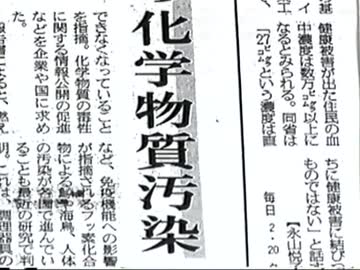 健康被害が出た住民の血
中濃度は数万以上に
なるとみられる。同省は
「27という濃度は直
ちに健康被害に結びつ
ものではない」と話
【永山悦
毎日 2・20
化学物質汚染
できなくなっていること
を指摘。化学物質の毒性
に関する情報公開の促進
などを企業や国に求め
た。
など、免疫機能への影響
が指摘されるフッ素化合
物による魚、海鳥、人体
の汚染が各国で進んでい
ることも最近の研究で判
明。これは、調理器